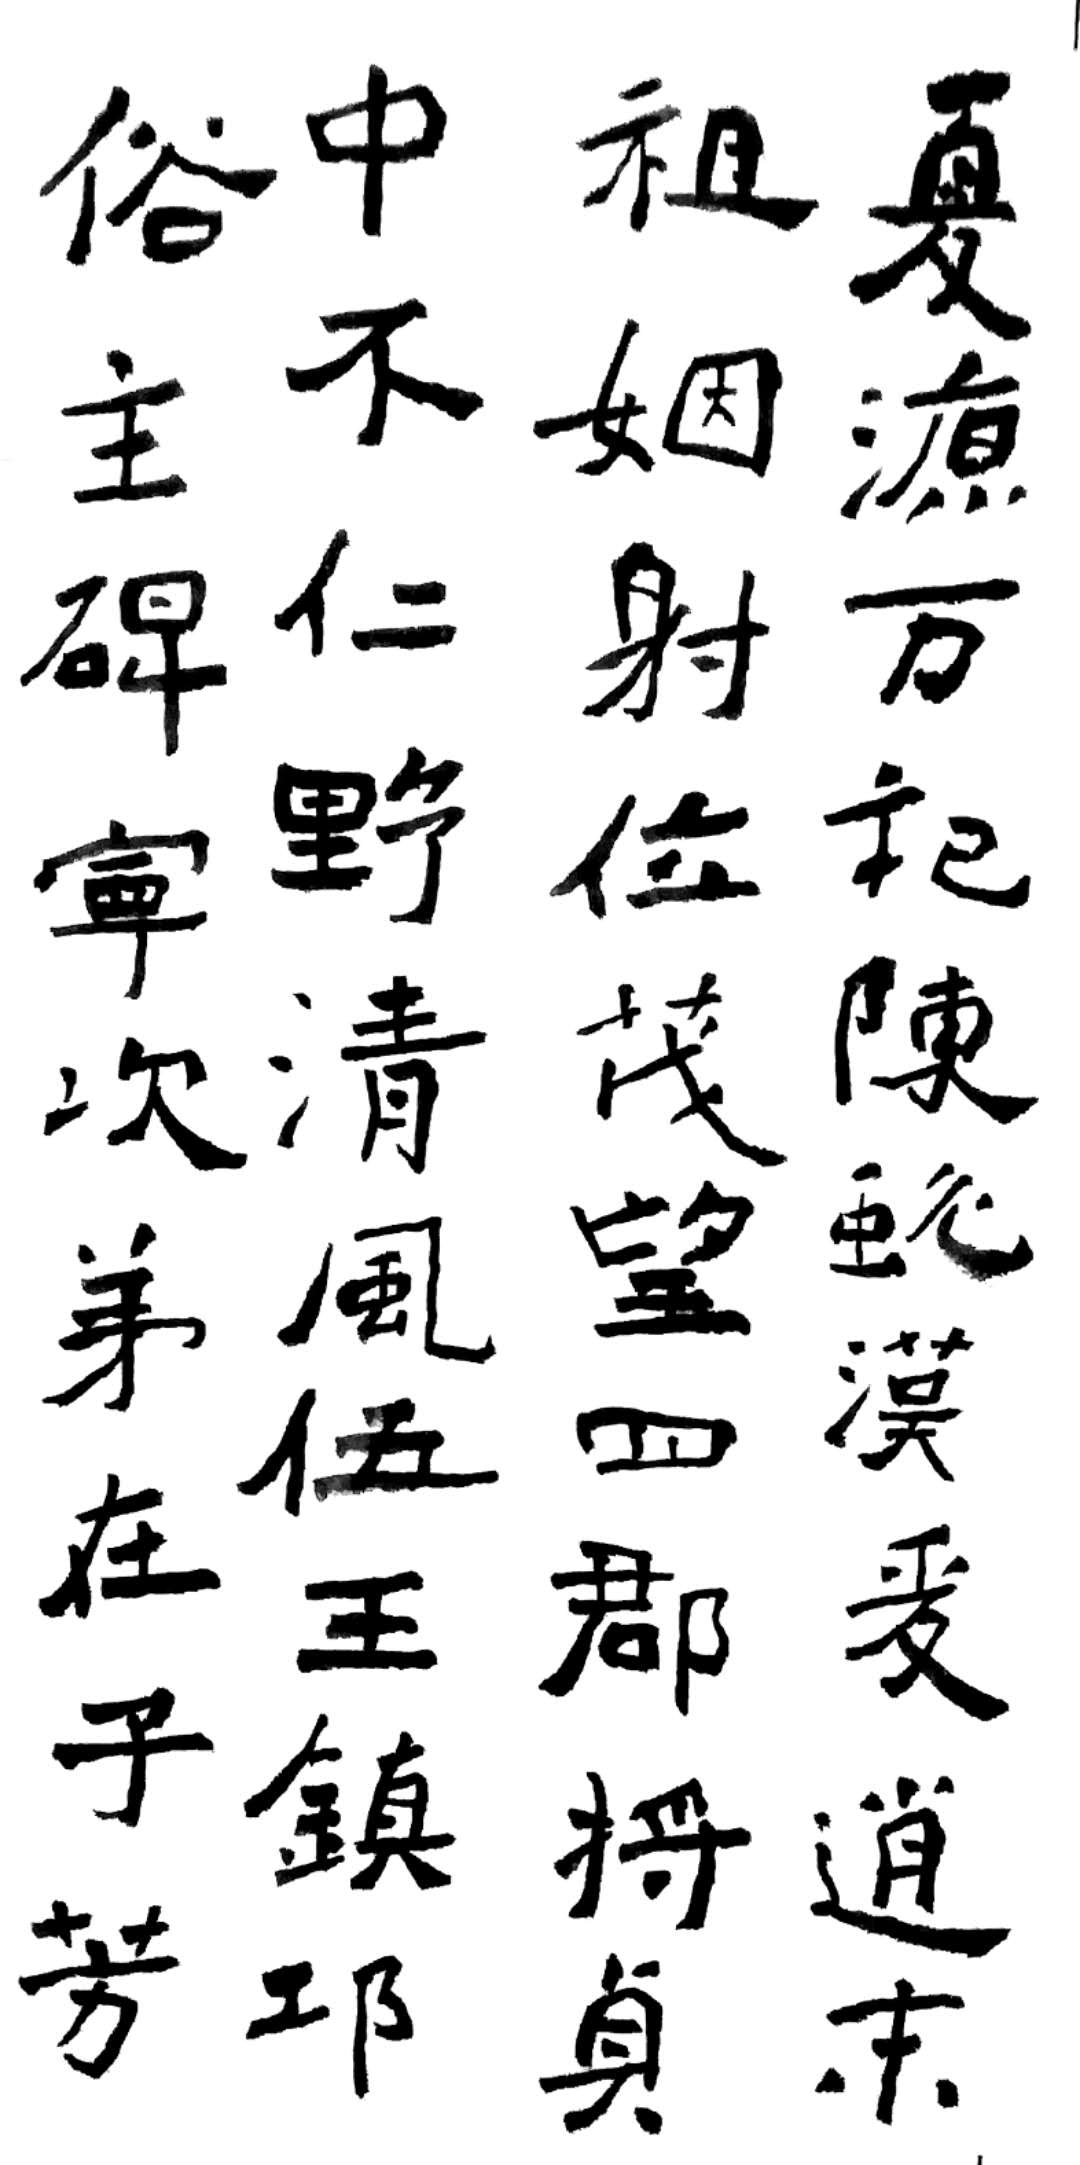 夏源万祀陳䖤漢爰逍末
祖姻射位茂望四郡将貞
中不仁野清風伍王鎮邛
俗主碑寧次弟在子芳